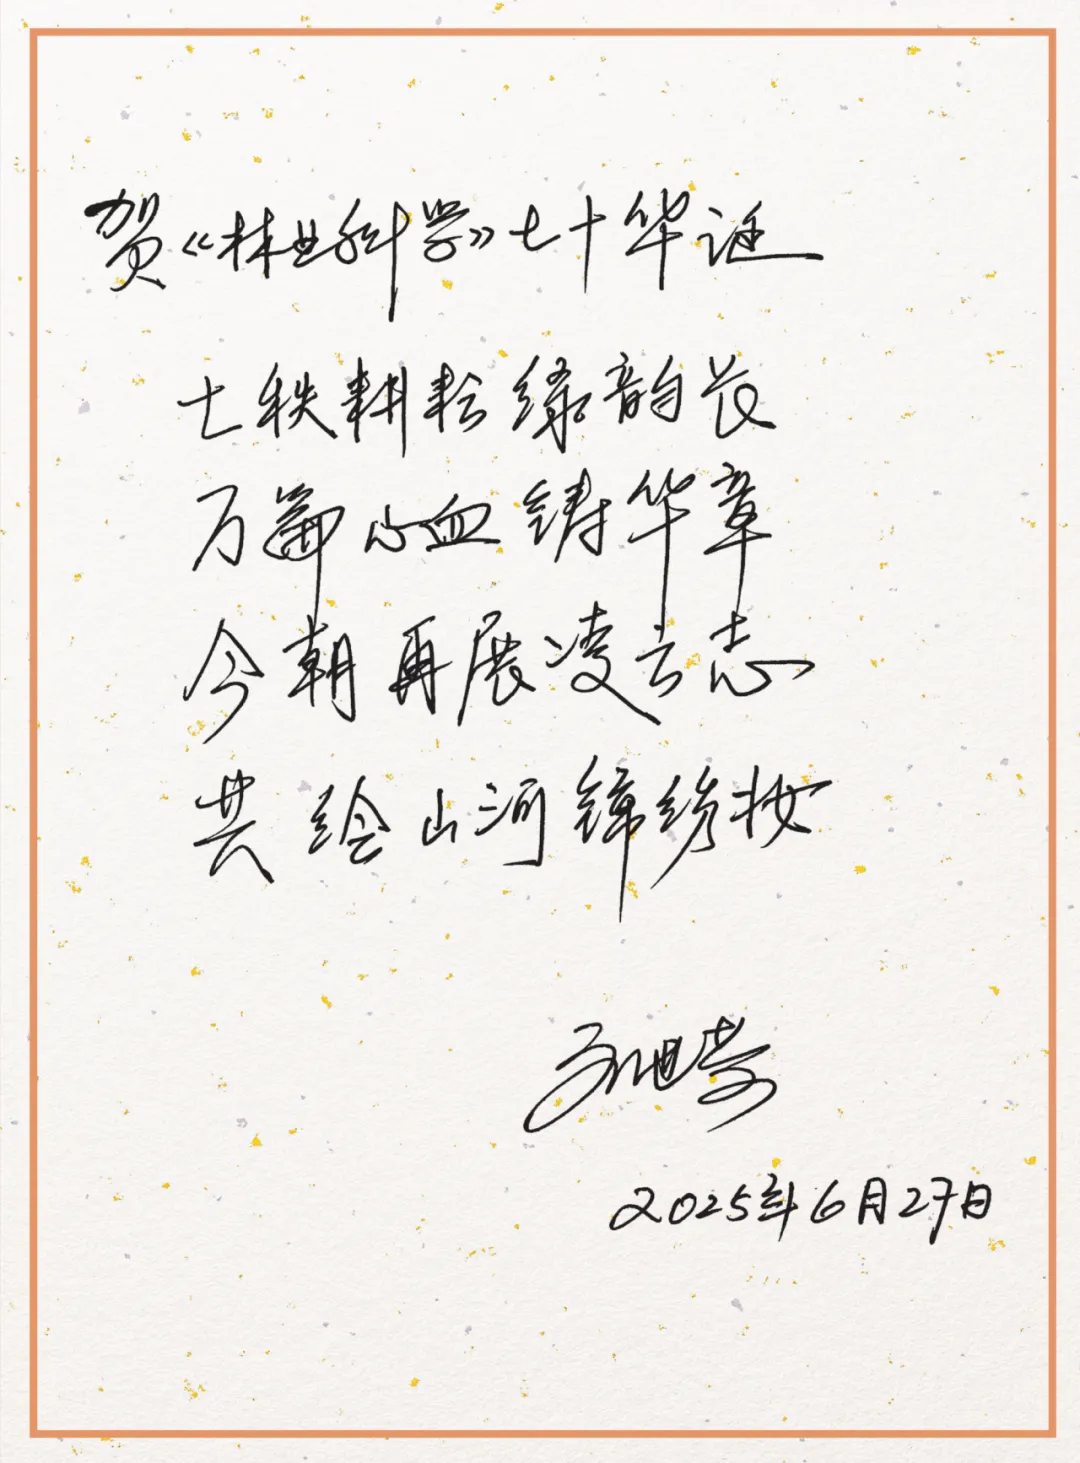 贺《林业科学》七十华诞
七秩耕耘绿韵长
万篇心血铸华章
今朝再展凌云志
共绘山河锦绣妆
2025年6月27日